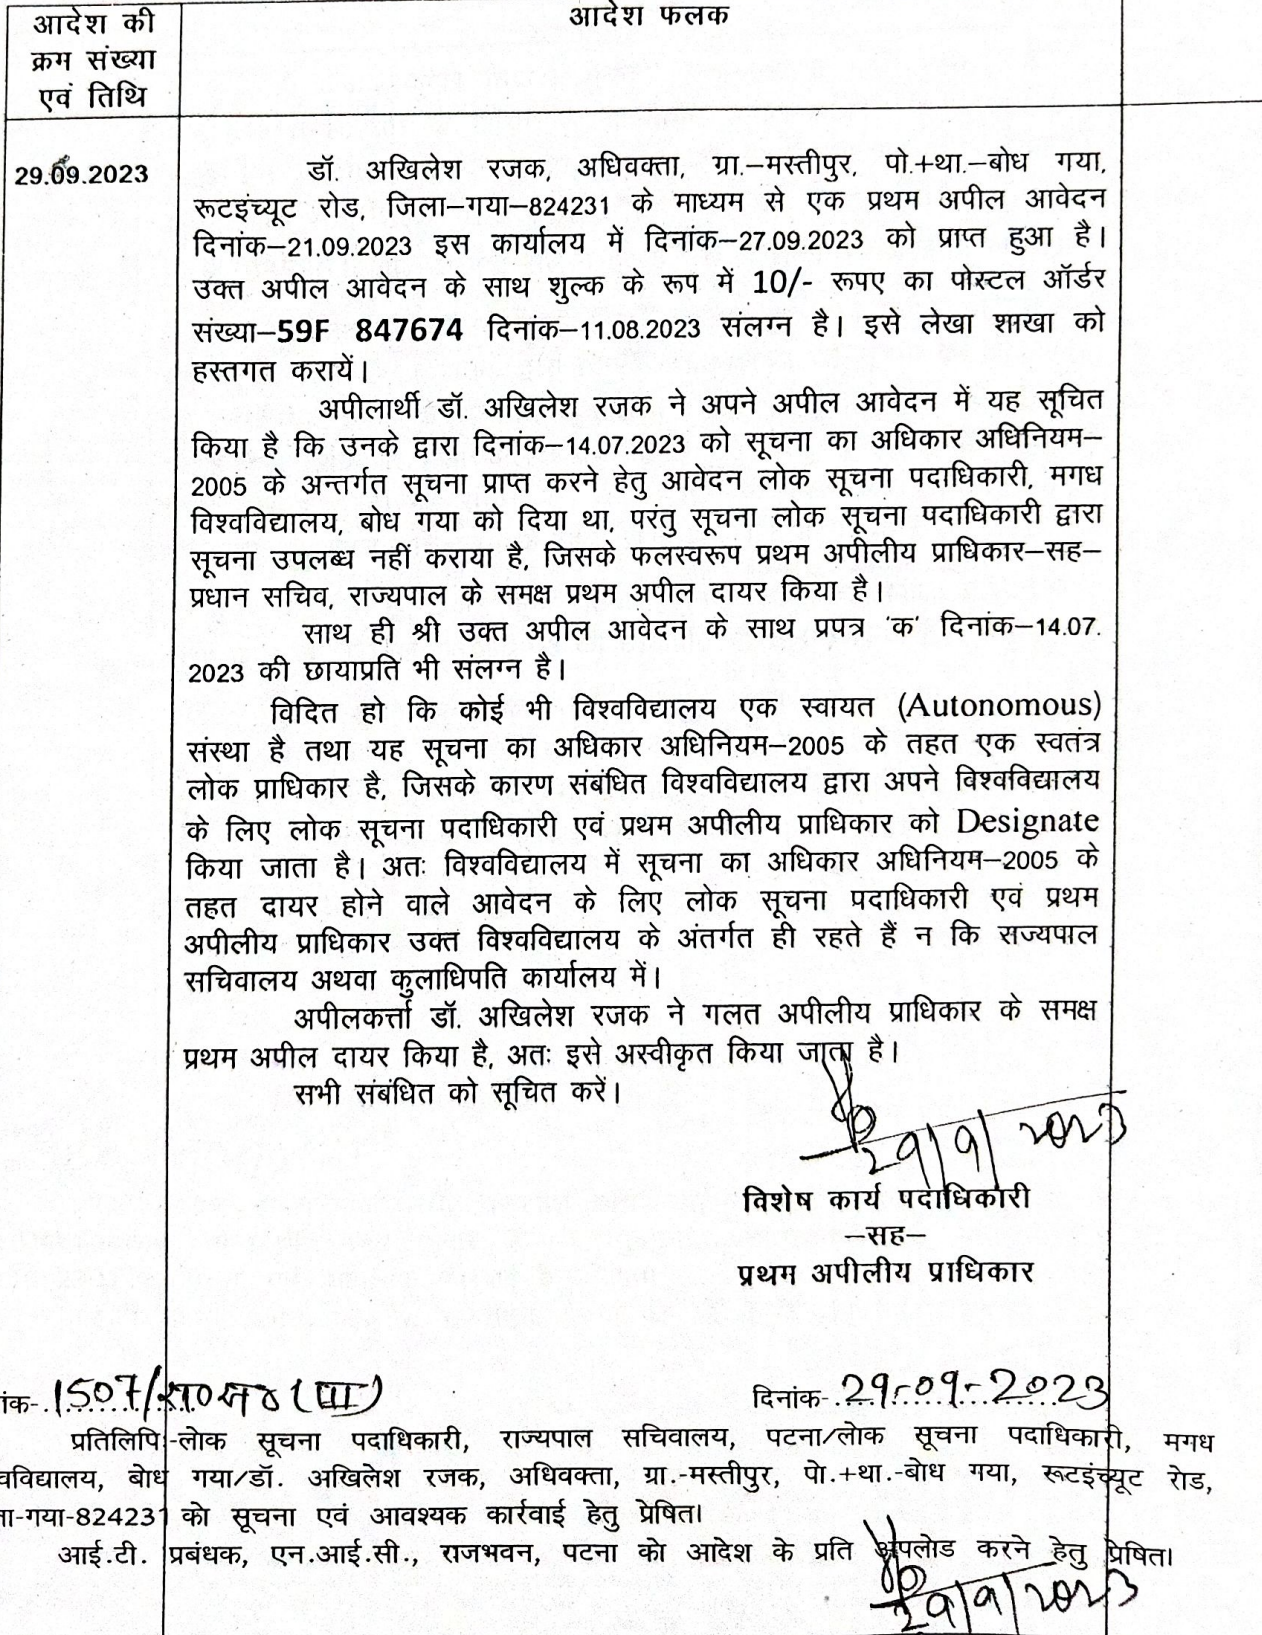 आदेश की
क्रम संख्या
एवं तिथि
आदेश फलक
29.09.2023
डॉ. अखिलेश रजक, अधिवक्ता, ग्रा.–मस्तीपुर, पो.+था.–बोध गया,
रूटइंच्यूट रोड, जिला–गया–824231 के माध्यम से एक प्रथम अपील आवेदन
दिनांक–21.09.2023 इस कार्यालय में दिनांक–27.09.2023 को प्राप्त हुआ है।
उक्त अपील आवेदन के साथ शुल्क के रूप में 10/- रूपए का पोस्टल ऑर्डर
संख्या–59F 847674 दिनांक–11.08.2023 संलग्न है। इसे लेखा शाखा को
हस्तगत करायें।
अपीलार्थी डॉ. अखिलेश रजक ने अपने अपील आवेदन में यह सूचित
किया है कि उनके द्वारा दिनांक–14.07.2023 को सूचना का अधिकार अधिनियम–
2005 के अन्तर्गत सूचना प्राप्त करने हेतु आवेदन लोक सूचना पदाधिकारी, मगध
विश्वविद्यालय, बोध गया को दिया था, परंतु सूचना लोक सूचना पदाधिकारी द्वारा
सूचना उपलब्ध नहीं कराया है, जिसके फलस्वरूप प्रथम अपीलीय प्राधिकार–सह–
प्रधान सचिव, राज्यपाल के समक्ष प्रथम अपील दायर किया है।
साथ ही श्री उक्त अपील आवेदन के साथ प्रपत्र 'क' दिनांक–14.07.
2023 की छायाप्रति भी संलग्न है।
विदित हो कि कोई भी विश्वविद्यालय एक स्वायत (Autonomous)
संस्था है तथा यह सूचना का अधिकार अधिनियम–2005 के तहत एक स्वतंत्र
लोक प्राधिकार है, जिसके कारण संबंधित विश्वविद्यालय द्वारा अपने विश्वविद्यालय
के लिए लोक सूचना पदाधिकारी एवं प्रथम अपीलीय प्राधिकार को Designate
किया जाता है। अतः विश्वविद्यालय में सूचना का अधिकार अधिनियम–2005 के
तहत दायर होने वाले आवेदन के लिए लोक सूचना पदाधिकारी एवं प्रथम
अपीलीय प्राधिकार उक्त विश्वविद्यालय के अंतर्गत ही रहते हैं न कि सज्यपाल
सचिवालय अथवा कुलाधिपति कार्यालय में।
अपीलकर्त्ता डॉ. अखिलेश रजक ने गलत अपीलीय प्राधिकार के समक्ष
प्रथम अपील दायर किया है, अतः इसे अस्वीकृत किया जाता है।
सभी संबंधित को सूचित करें।
29/9/2023
विशेष कार्य पदाधिकारी
–सह–
प्रथम अपीलीय प्राधिकार
ांक-.1507/रा०स० (III)
दिनांक-.29-09-2023
प्रतिलिपि:-लोक सूचना पदाधिकारी, राज्यपाल सचिवालय, पटना/लोक सूचना पदाधिकारी, मगध
वविद्यालय, बोध गया/डॉ. अखिलेश रजक, अधिवक्ता, ग्रा.-मस्तीपुर, पो.+था.-बोध गया, रूटइंच्यूट रोड,
ा-गया-824231 को सूचना एवं आवश्यक कार्रवाई हेतु प्रेषित।
आई.टी. प्रबंधक, एन.आई.सी., राजभवन, पटना को आदेश के प्रति अपलोड करने हेतु प्रेषित।
29/9/2023